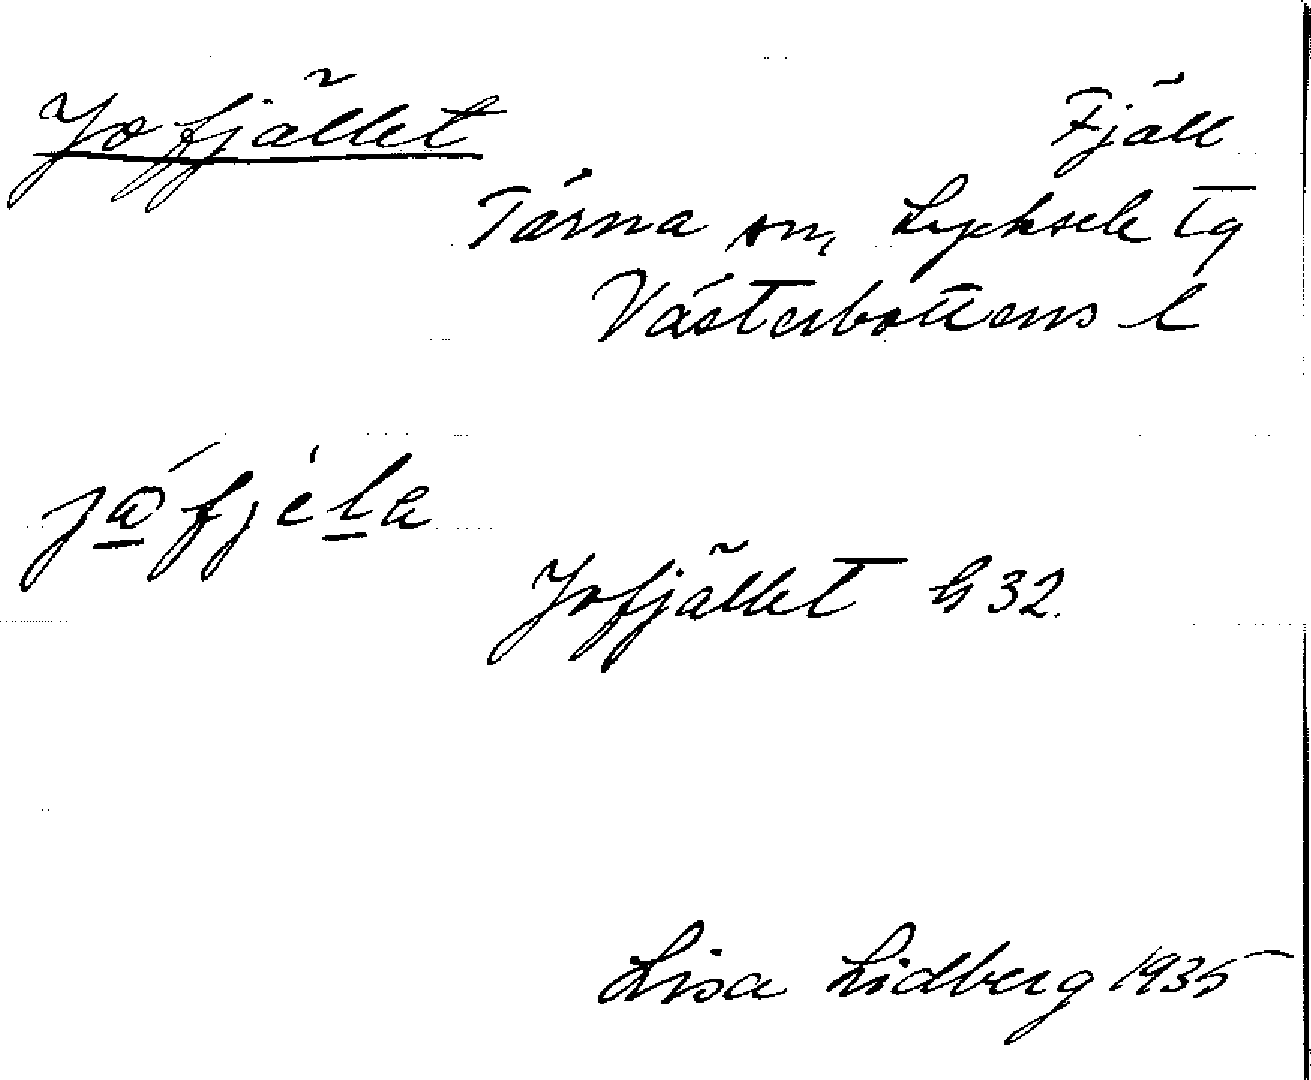 Jofjället
Fjäll
Tärna sn, Lycksele tg
Västerbottens l
Jofjället G 32.
Lisa Lidberg 1935